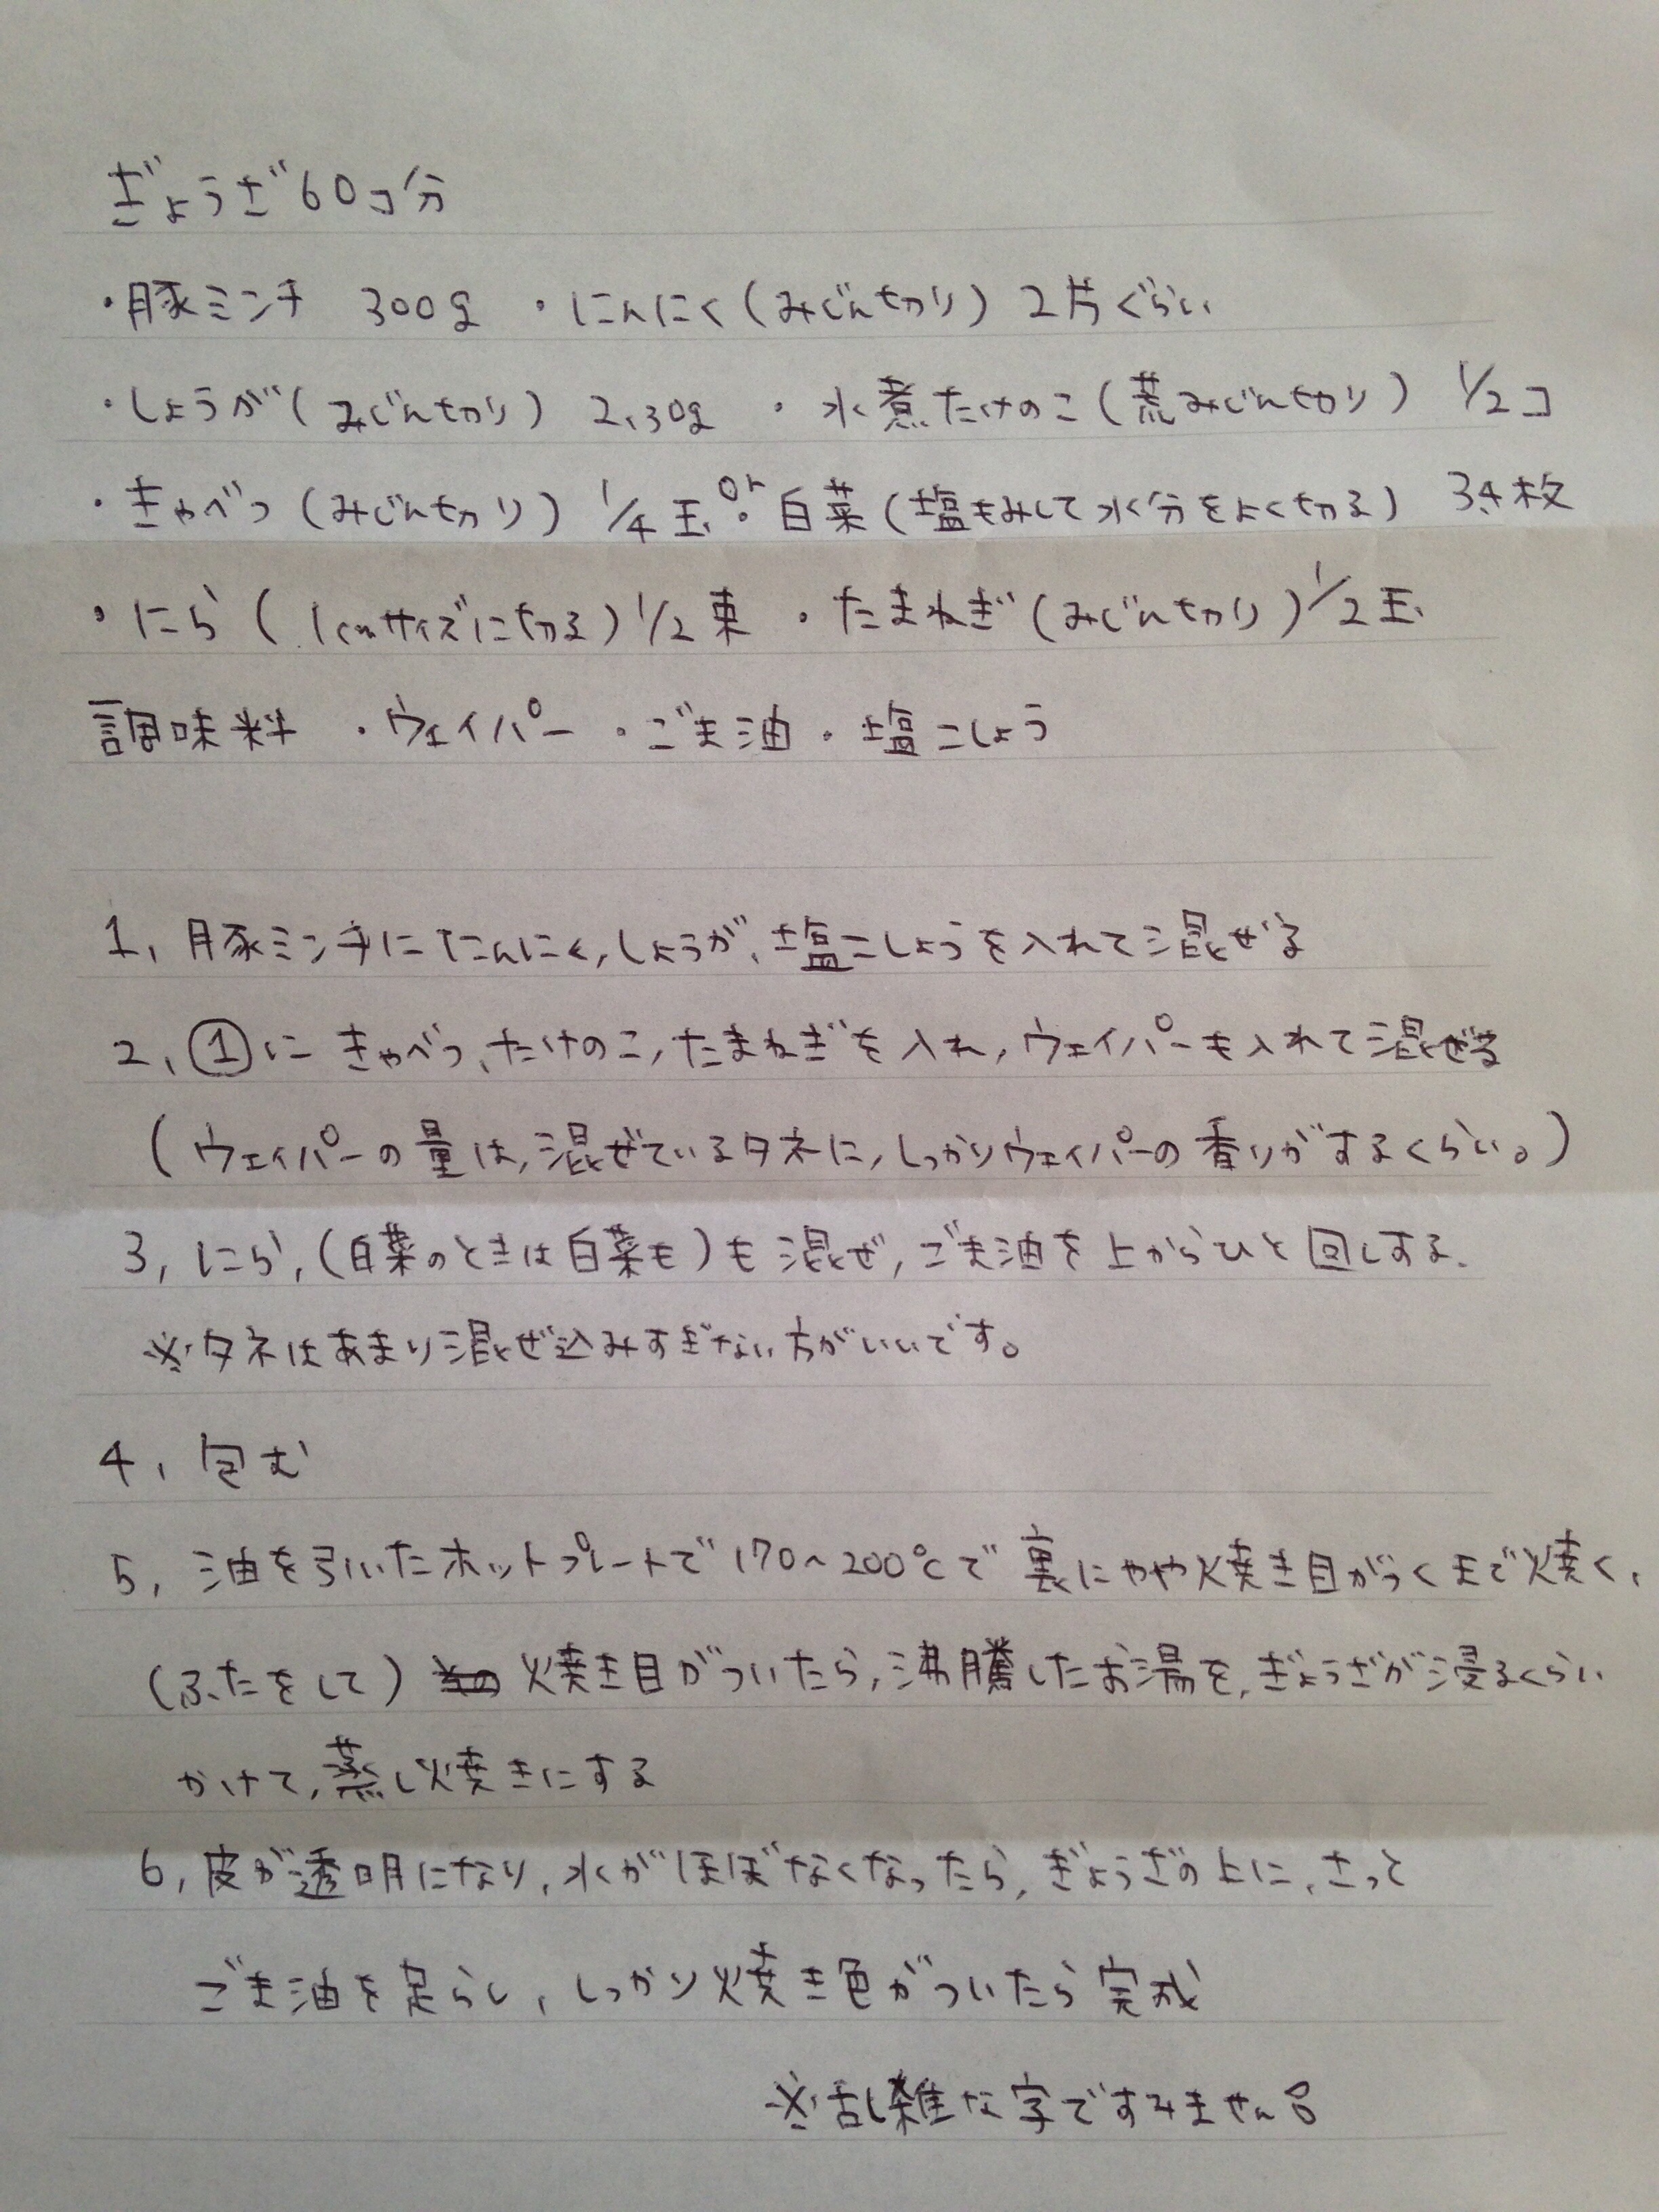 ぎょうざ60コ分
・豚ミンチ 300g ・にんにく(みじん切り) 2片ぐらい
・しょうが(みじん切り) 2,30g ・水煮たけのこ(荒みじん切り) 1/2コ
・きゃべつ(みじん切り) 1/4玉、or・白菜(塩もみして水分をよく切る) 3,4枚
・にら(1cmサイズに切る)1/2束 ・たまねぎ(みじん切り)1/2玉
調味料 ・ウェイパー ・ごま油 ・塩こしょう
1, 豚ミンチににんにく,しょうが、塩こしょうを入れて混ぜる
2, ①に きゃべつ、たけのこ,たまねぎを入れ,ウェイパーも入れて混ぜる
(ウェイパーの量は,混ぜているタネに,しっかりウェイパーの香りがするくらい。)
3, にら,(白菜のときは白菜も)も混ぜ,ごま油を上からひと回しする.
※タネはあまり混ぜ込みすぎない方がいいです。
4, 包む
5, 油を引いたホットプレートで170~200℃で裏にやや焼き目がつくまで焼く,
(ふたをして) 焼き目がついたら,沸騰したお湯を,ぎょうざが浸るくらい
かけて,蒸し焼きにする
6, 皮が透明になり,水がほぼなくなったら,ぎょうざの上に,さっと
ごま油を足らし,しっかり焼き色がついたら完成
※乱雑な字ですみません